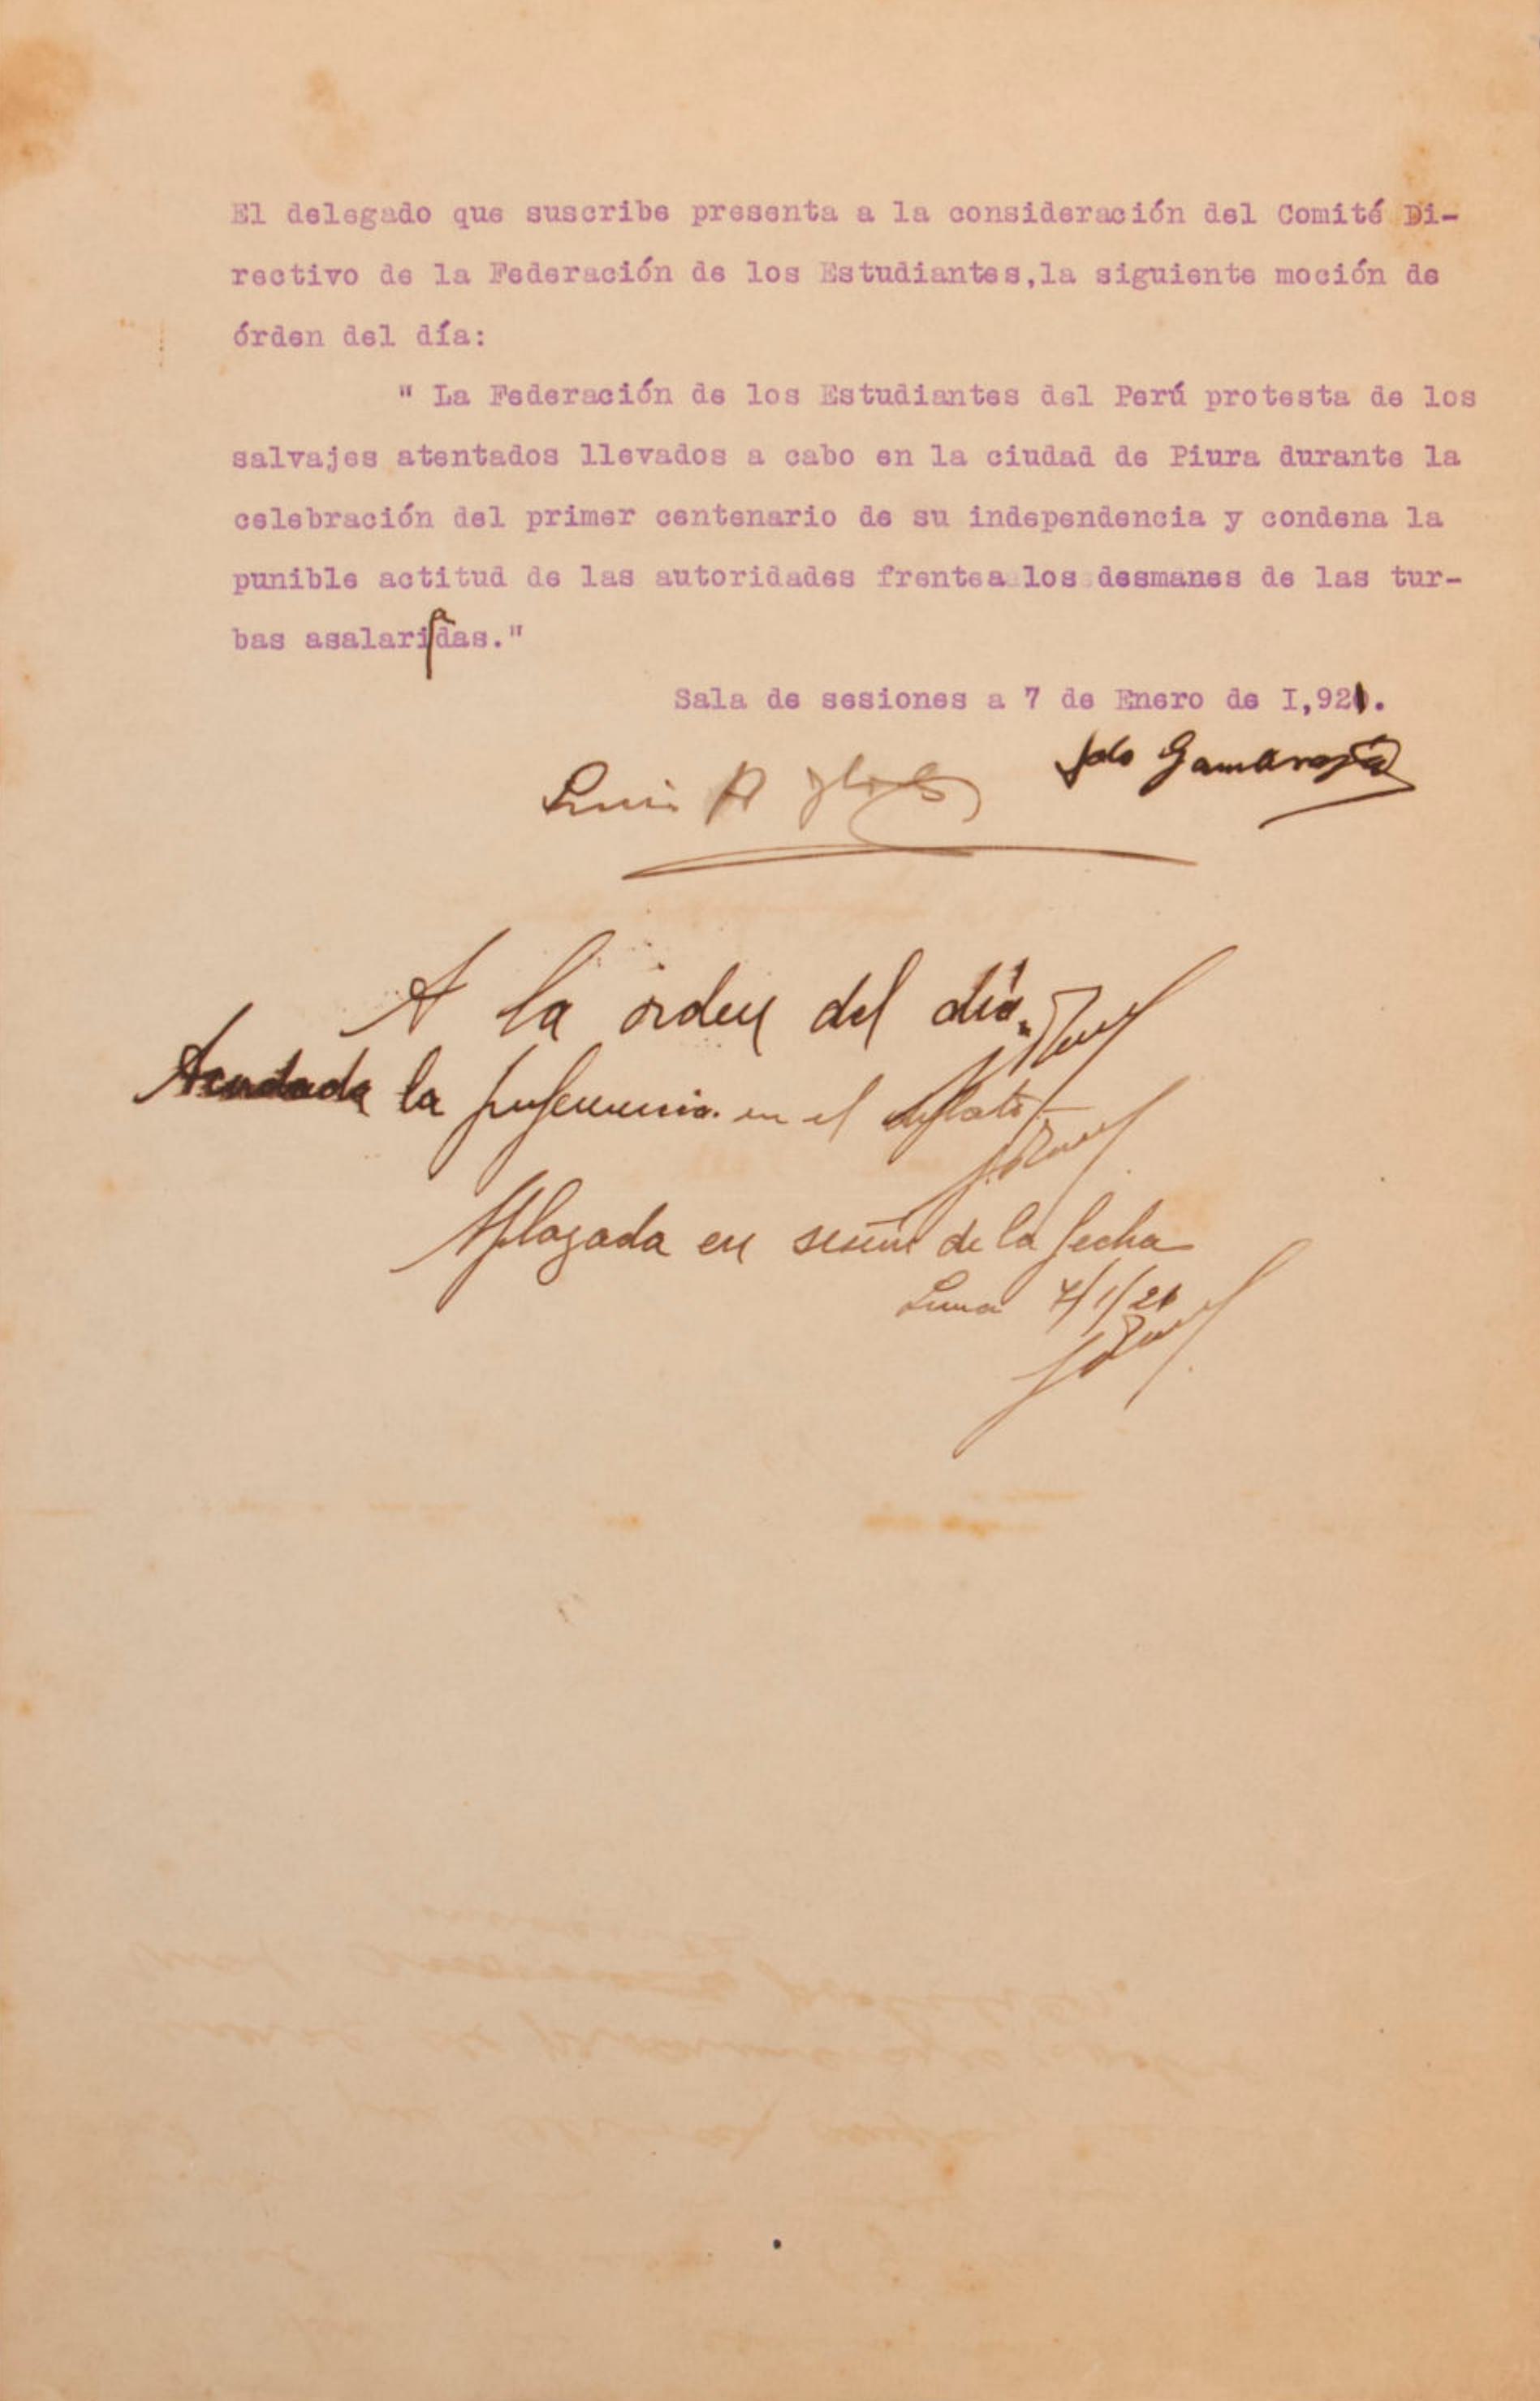 El delegado que suscribe presenta a la consideración del Comité Di-
rectivo de la Federación de los Estudiantes,la siguiente moción de
órden del día:
" La Federación de los Estudiantes del Perú protesta de los
salvajes atentados llevados a cabo en la ciudad de Piura durante la
celebración del primer centenario de su independencia y condena la
punible actitud de las autoridades frentea los desmanes de las tur-
bas asalariadas."
Sala de sesiones a 7 de Enero de I,921.
Luis A
A la orden del día.
la en el
Aplazada en sesión de la fecha
Lima 7/1/21